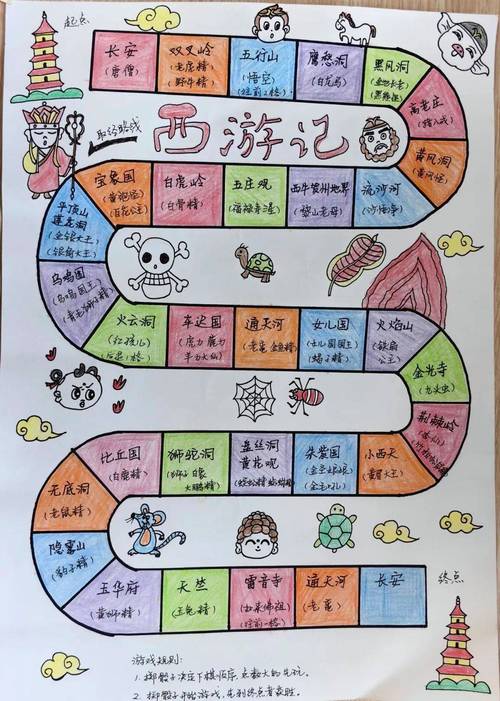 起点
长安
(唐僧)
双叉岭
(老虎精)
(野牛精)
五行山
(悟空)
(往前2格)
鹰愁洞
(白龙马)
黑风洞
(金池长老)
(黑熊怪)
高老庄
(猪八戒)
黄风洞
(黄风怪)
流沙河
(沙悟净)
西牛贺州地界
(黎山老母)
五庄观
(福禄寿逢)
白虎岭
(白骨精)
宝象国
(黄袍怪)
(百花公主)
取经路线
西游记
平顶山
莲花洞
(金银大王)
(银角大王)
乌鸡国
(乌鸡国王)
(青毛狮子精)
火云洞
(红孩儿)
(后退1格)
车迟国
(虎力 鹿力
羊力大仙)
通天河
(老鼋 金鱼精)
女儿国
(女儿国国王)
(蝎子精)
火焰山
(铁扇
公主)
金光寺
(九头虫)
荆棘岭
小西天
(黄眉大王)
朱紫国
(金圣娘娘)
(金毛犼)
盘丝洞
黄花观
(蜘蛛精 蜈蚣精)
狮驼洞
(狮子 白象
大鹏精)
比丘国
(白鹿精)
无底洞
(老鼠精)
隐雾山
(豹子精)
玉华府
(黄狮精)
天竺
(玉兔精)
雷音寺
(如来佛祖)
(往前一格)
通天河
(老鼋)
长安
终点
游戏规则:
1. 掷骰子决定下棋顺序,点数大的先玩。
2. 掷骰子开始游戏,先到终点者获胜。